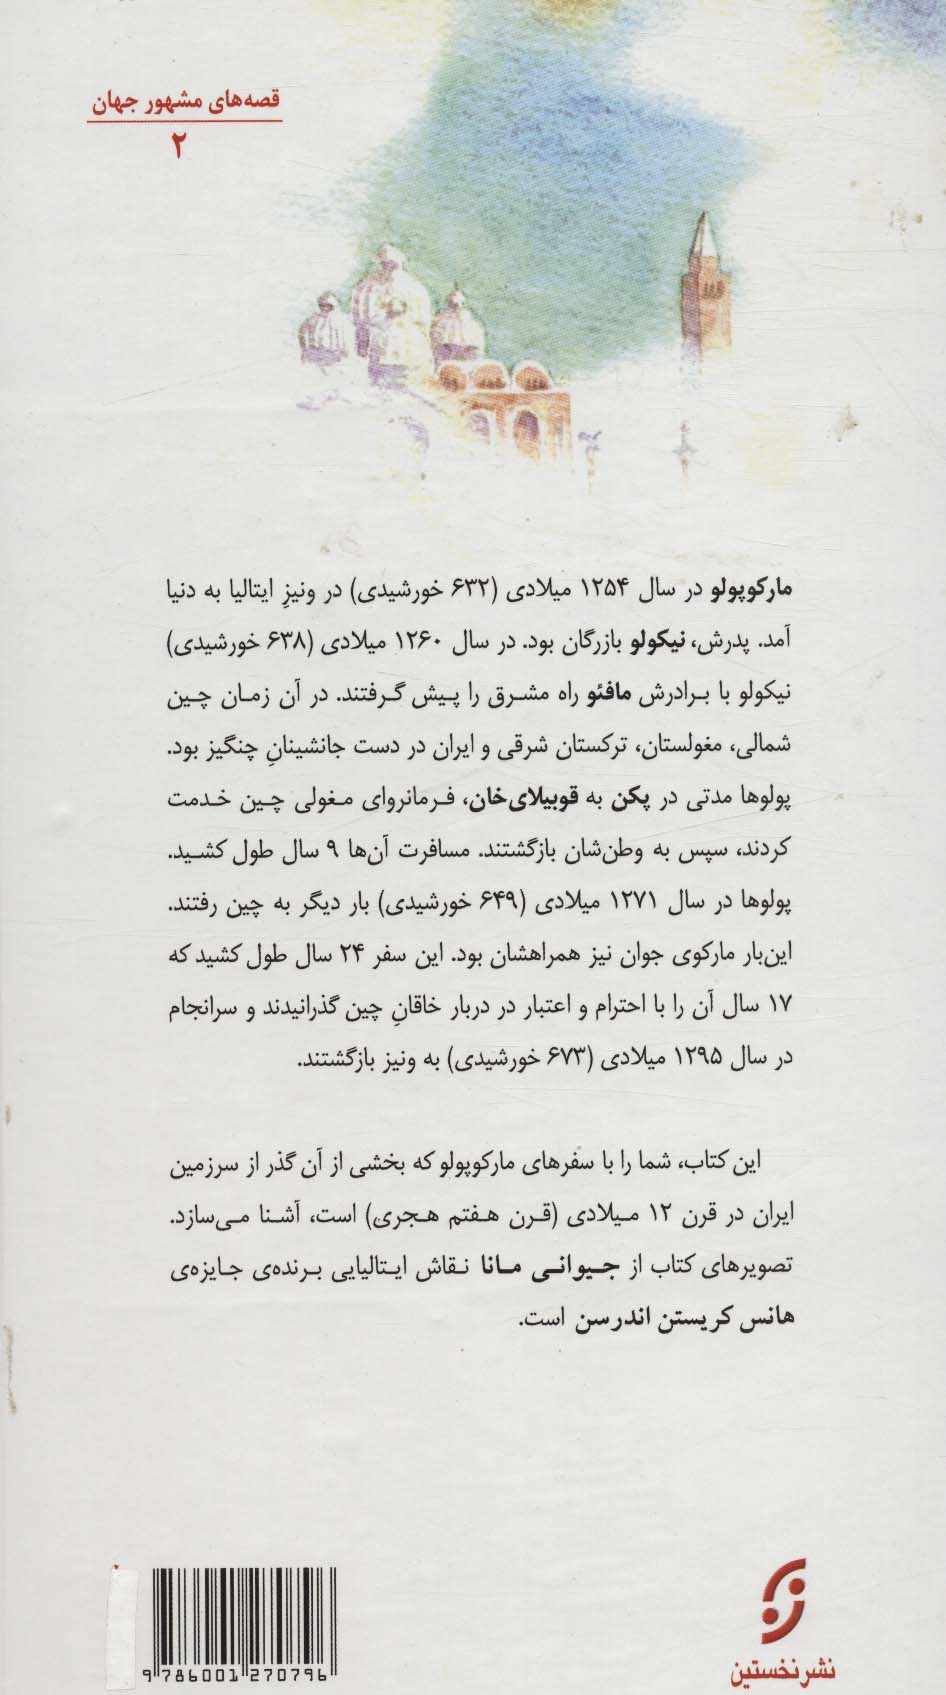 قصه‌های مشهور جهان
۲
مارکوپولو در سال ۱۲۵۴ میلادی (۶۳۲ خورشیدی) در ونیزِ ایتالیا به دنیا
آمد. پدرش، نیکولو بازرگان بود. در سال ۱۲۶۰ میلادی (۶۳۸ خورشیدی)
نیکولو با برادرش مافئو راه مشرق را پیش گرفتند. در آن زمان چین
شمالی، مغولستان، ترکستان شرقی و ایران در دست جانشینانِ چنگیز بود.
پولوها مدتی در پکن به قوبیلای‌خان، فرمانروای مغولی چین خدمت
کردند، سپس به وطن‌شان بازگشتند. مسافرت آن‌ها ۹ سال طول کشید.
پولوها در سال ۱۲۷۱ میلادی (۶۴۹ خورشیدی) بار دیگر به چین رفتند.
این‌بار مارکوی جوان نیز همراهشان بود. این سفر ۲۴ سال طول کشید که
۱۷ سال آن را با احترام و اعتبار در دربار خاقانِ چین گذرانیدند و سرانجام
در سال ۱۲۹۵ میلادی (۶۷۳ خورشیدی) به ونیز بازگشتند.
این کتاب، شما را با سفرهای مارکوپولو که بخشی از آن گذر از سرزمین
ایران در قرن ۱۲ میلادی (قرن هفتم هجری) است، آشنا می‌سازد.
تصویرهای کتاب از جیوانی مانا نقاش ایتالیایی برنده‌ی جایزه‌ی
هانس کریستن اندرسن است.
9 786001 270796
نشر نخستین